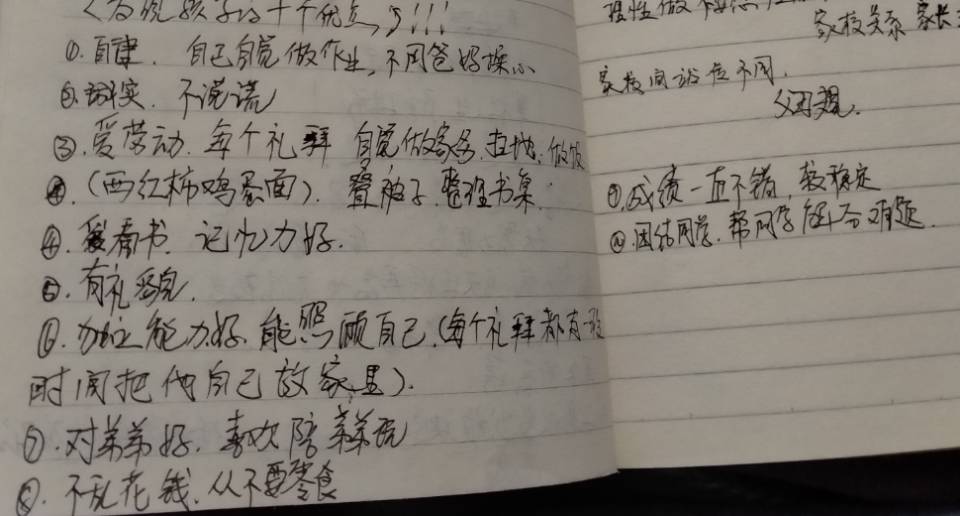 《发现孩子的十个优点》!!!
①.自律. 自己自觉做作业,不用爸妈操心
②.诚实. 不说谎
③.爱劳动. 每个礼拜 自觉做家务.拉地.做饭
(西红柿鸡蛋面). 叠被子.整理书桌.
④.爱看书. 记忆力好.
⑤.有礼貌.
⑥.独立能力好.能照顾自己.(每个礼拜都有一段
时间把他自己放家里).
⑦.对弟弟好. 喜欢陪弟弟玩
⑧.不乱花钱.从不要零食
理性做
家校关系 家长
家校间 不同.
⑨.成绩一直不错,较稳定
⑩.团结同学.帮同学 难题.